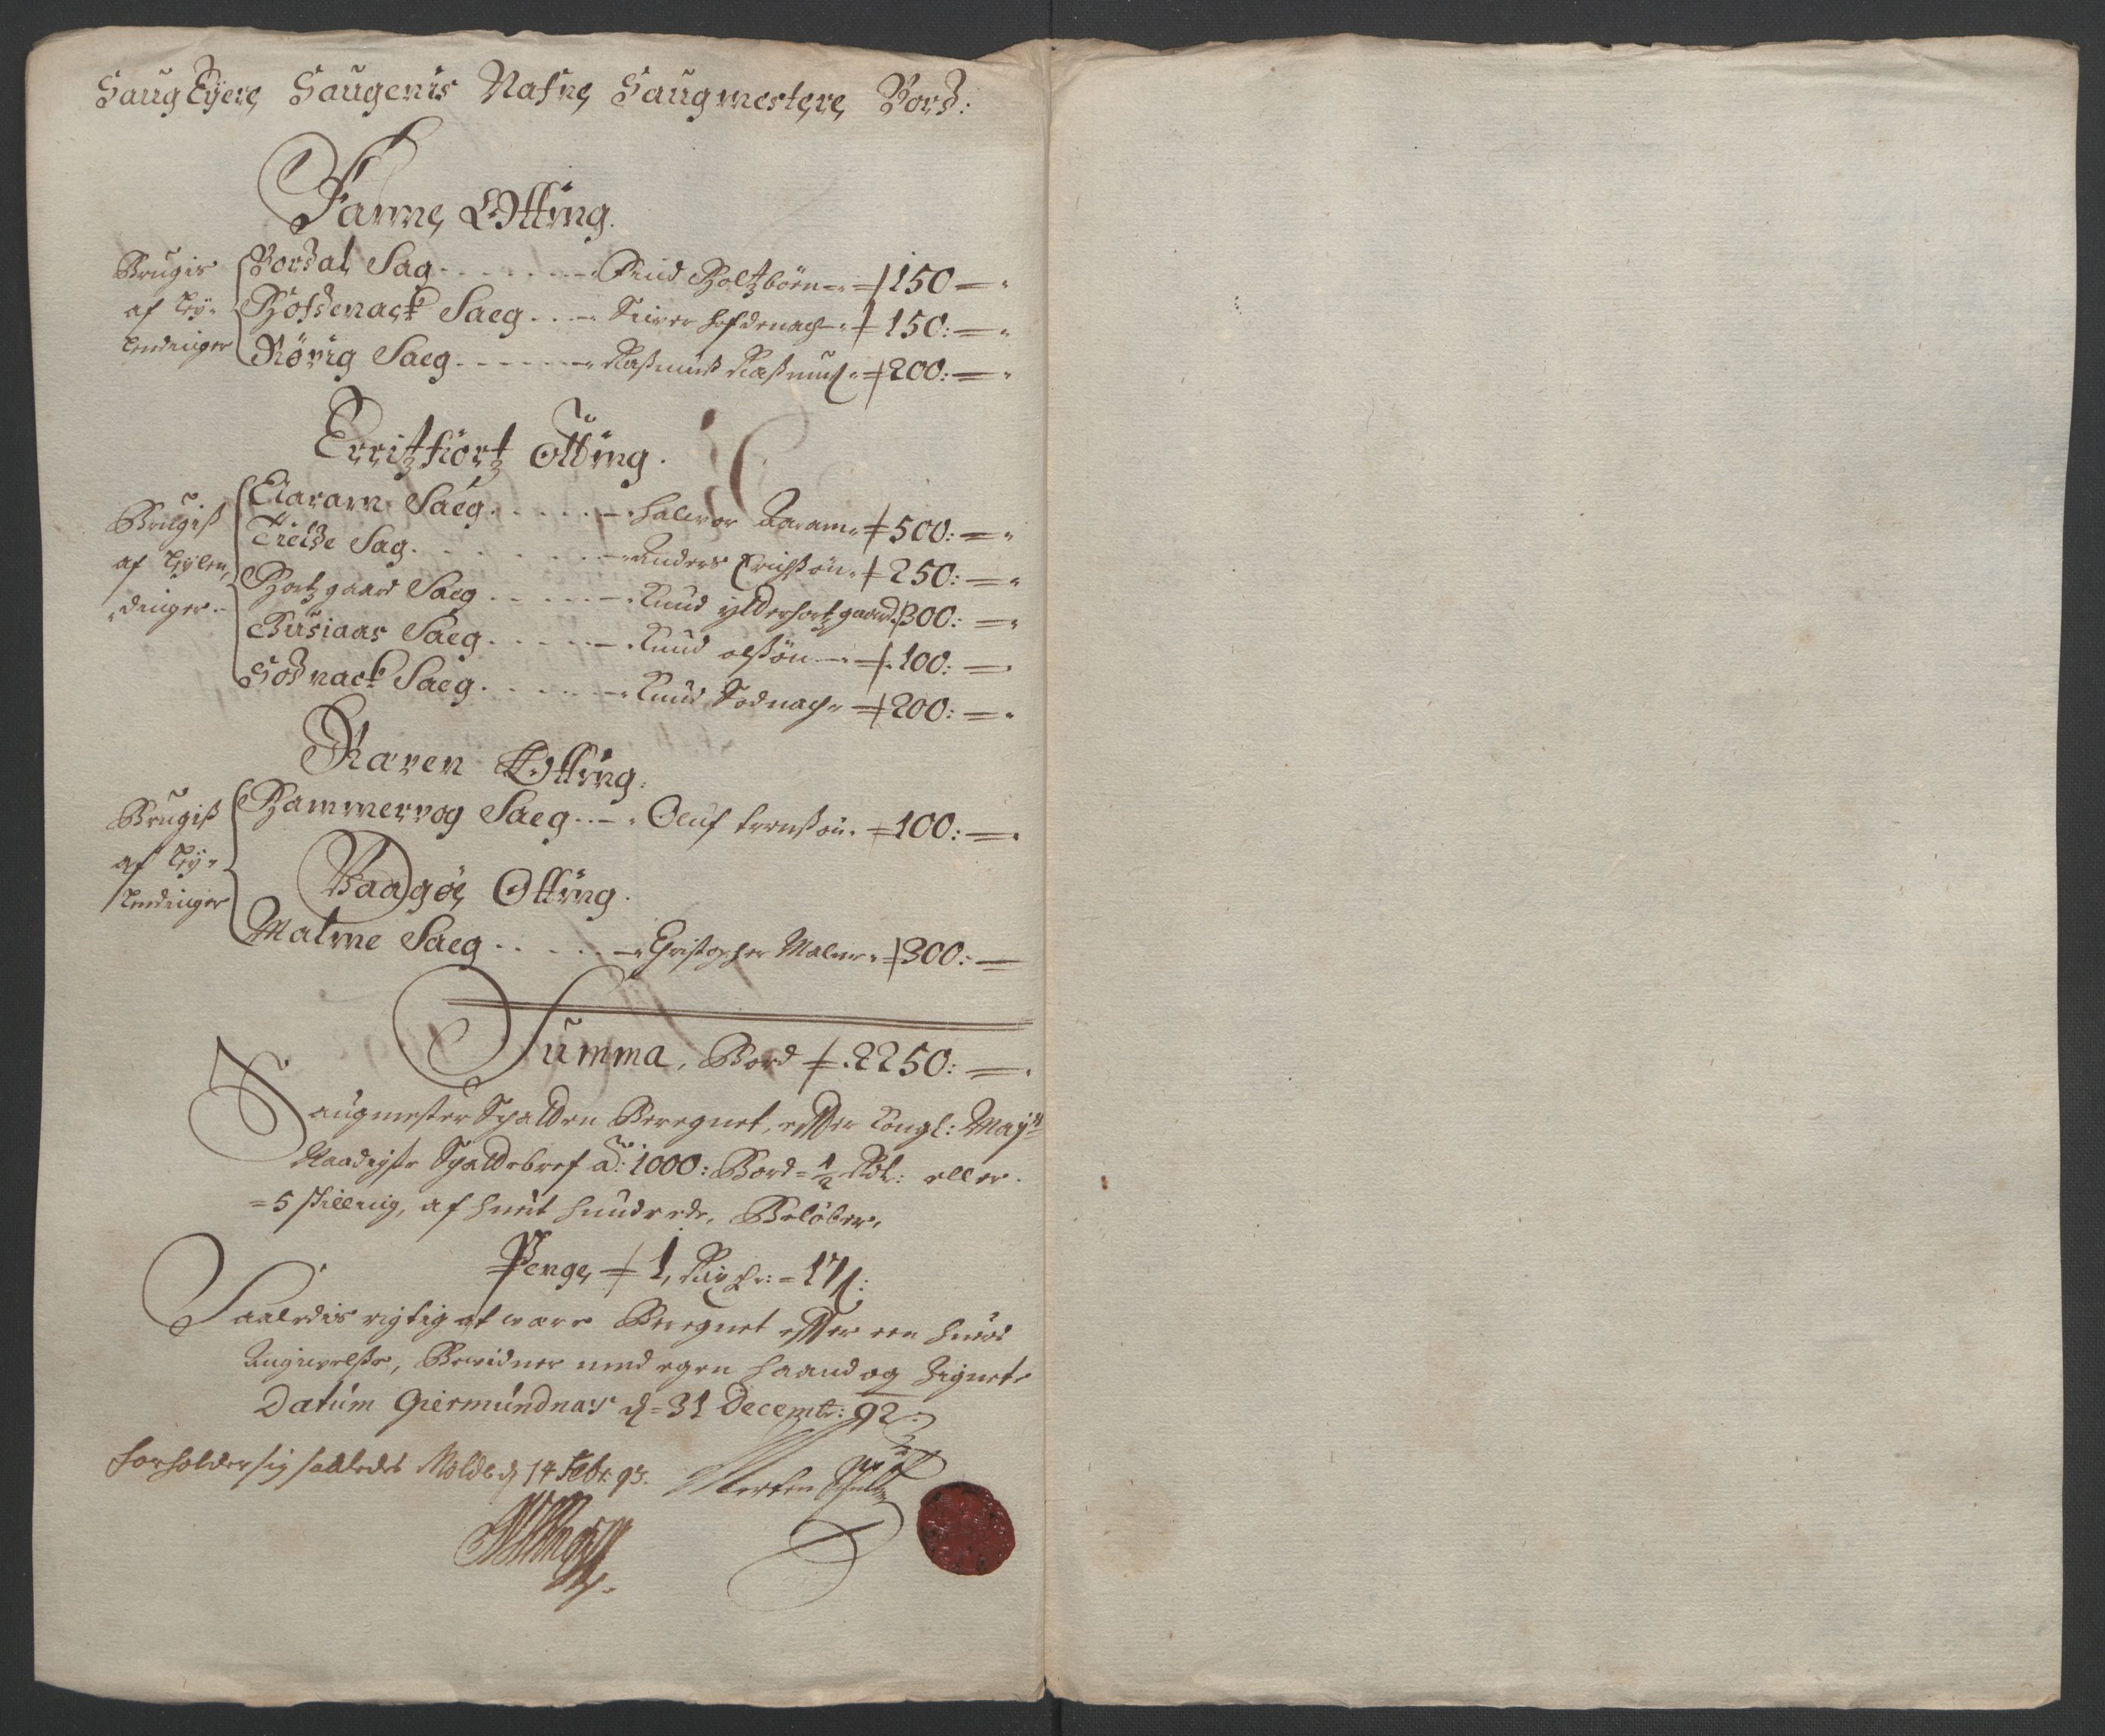 Saug Eyere, Saugenis Nafne, Saugmestere, Bord:
Fanne, Otting.
Brugis af Ley-lendinger
Bordal Sag - - - - - - Knud Holtzbörn - 150 -
Hofdenack Saeg - - - Siver Hofdenach - 150: -
Rövig Saeg - - - - - - Rasmus Rasmus: - 200: -
Erritzfiortz Otting.
Brugis af Leylen-dinger
Aaram Saeg - - - - - Halvor Aaram - 500: -
Treide Sag - - - - - - Anders Erichsön - 250: -
Hortzgaard Saeg - - - - - Knud ytterhortzgaard - 300: -
Busiaas Saeg - - - - - Knud olsön - 100: -
Sodnack Saeg - - - - - Knud Sodnach - 200: -
Raven Otting:
Brugis af Ley-lendinger
Hammervog Saeg - - Oluf - 100: -
Vaagöe, Otting.
Malme Saeg - - - - - Christopher Malme - 300: -
Summa, Bord 2250: -
Saugmester Schatten Beregnet, effter Kongl: Mayts
Naadigste Schattebref à: 1000: Bord = 1/2 Rdr: eller
= 5 skilling, af huert hundrede, Belöber,
Penge, 1, Rixdr: = 17 s:
Saaledis rigtig at være Beregnet effter een huers
Angivelse, Bevidner med egen Haand og Zignete
Datum Giermundnas d= 31 Decembr: 92:
Forholder sig saaledes Molde d 14 Febr: 93.
Morten